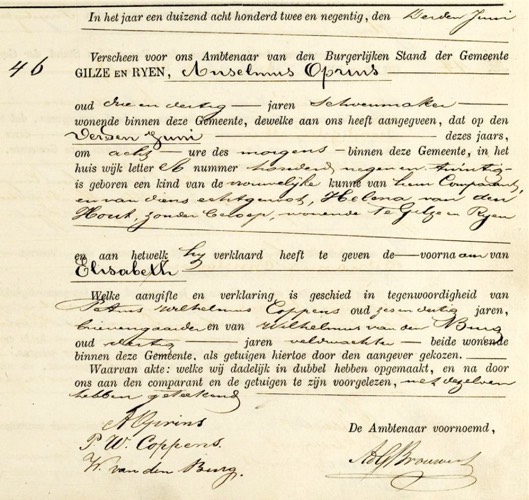 In het jaar een duizend acht honderd twee en negentig, den Derden Juni
46
Verscheen voor ons Ambtenaar van den Burgerlijken Stand der Gemeente
GILZE EN RYEN, Anselmus Oprins
oud drie en dertig jaren Schoenmaker
wonende binnen deze Gemeente, dewelke aan ons heeft aangegeven, dat op den
Derden Juni dezes jaars,
om acht ure des morgens binnen deze Gemeente, in het
huis wijk letter A nummer honderd negen en twintig
is geboren een kind van de vrouwelijke kunne van hem Comparant,
en van diens echtgenoot, Helena van den
Hout, zonder beroep, wonende te Gilze en Ryen
en aan hetwelk hij verklaard heeft te geven de voornaam van
Elisabeth
Welke aangifte en verklaring is geschied in tegenwoordigheid van
Petrus Wilhelmus Coppens oud zes en dertig jaren,
brievengaarder en van Wilhelmus van den Burg
oud dertig jaren veldwachter beide wonende
binnen deze Gemeente. als getuigen hiertoe door den aangever gekozen.
Waarvan akte: welke wij dadelijk in dubbel hebben opgemaakt, en na door
ons aan den comparant en de getuigen te zijn voorgelezen, met dezelven
hebben geteekend
A Oprins
P. W. Coppens.
W. van den Burg.
De Ambtenaar voornoemd,
Brouwers